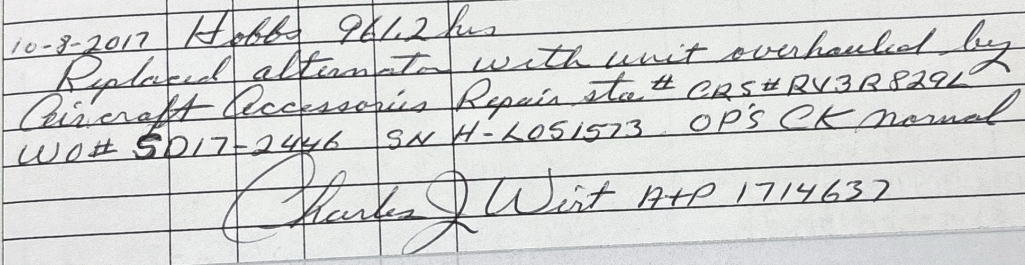 10-8-2017 Hobbs 961.2 hrs
Replaced alternator with unit overhauled by
Aircraft Accessories Repair sta # CRS#RV3R829L
WO# SD17-2446 SN H-L051573 OP'S CK normal
Charles J Wirt A+P 1714637